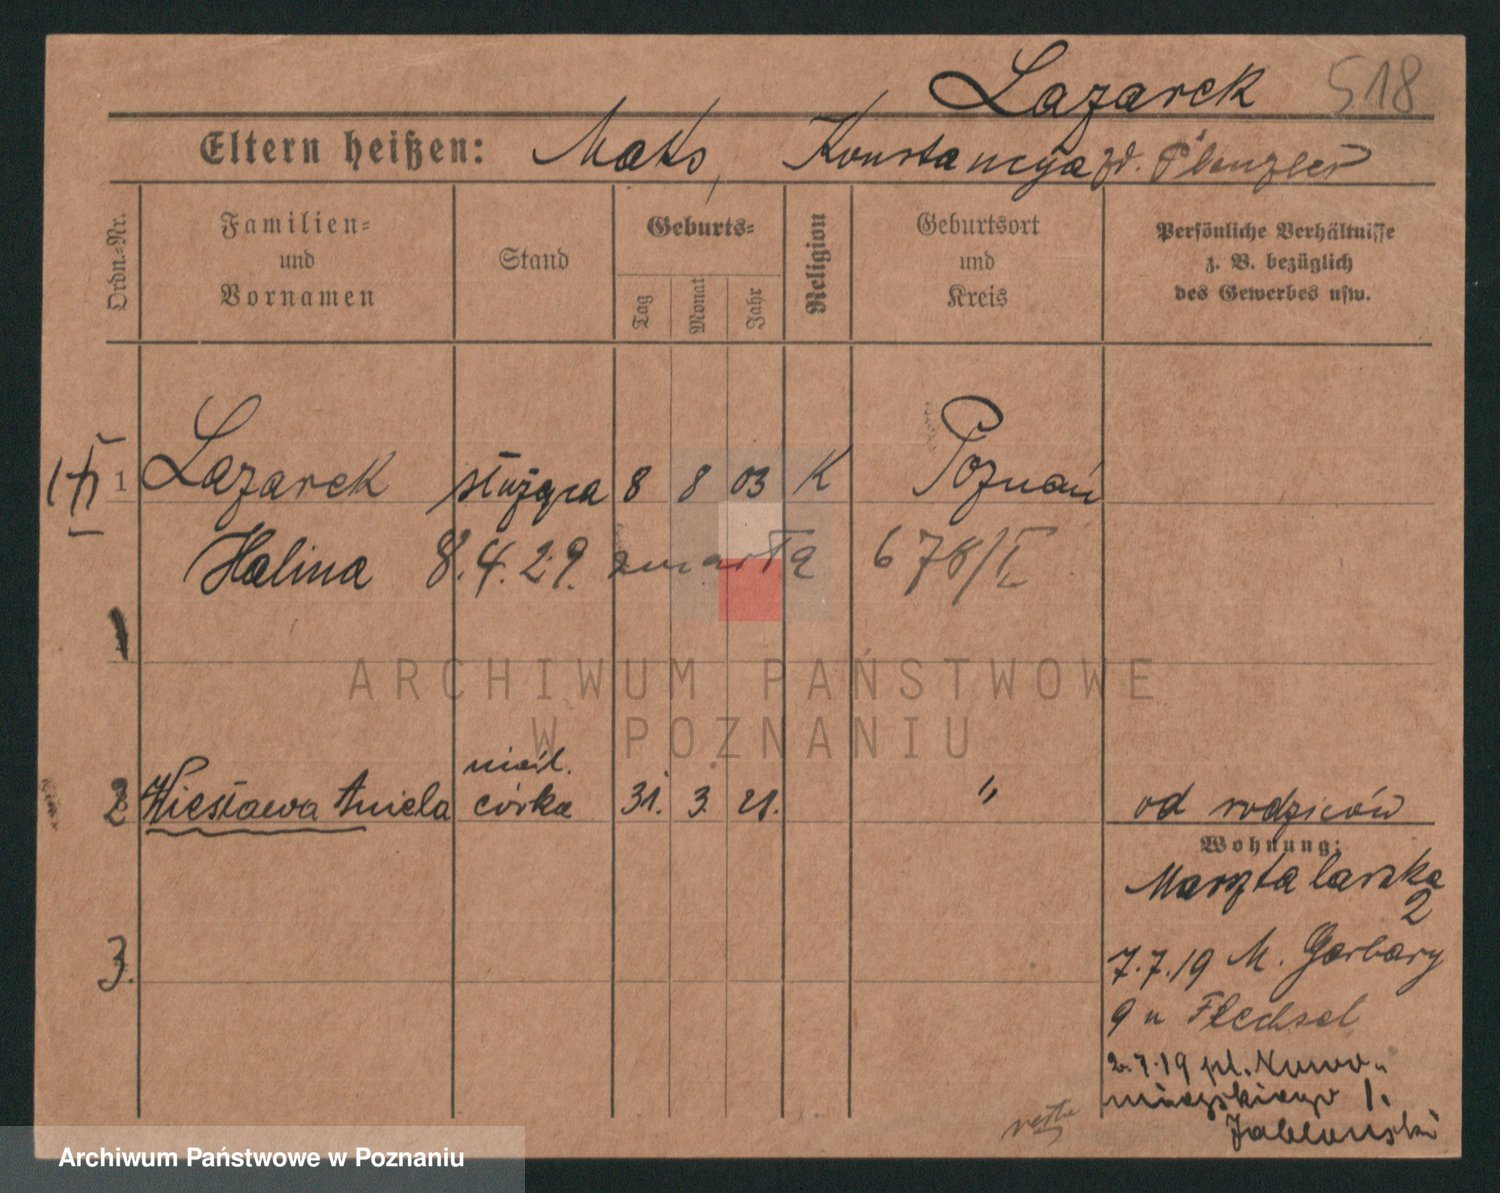 Lazarek 518
Eltern heißen: Maks, Konstancya zd.
Ordn.-Nr.
Familien-
und
Vornamen
Stand
Geburts-
Tag
Monat
Jahr
Religion
Geburtsort
und
Kreis
Persönliche Verhältnisse
z. B. bezüglich
des Gewerbes usw.
1 Lazarek służąca 8 8 03 K Poznań
Halina 8.4.29. zmarła 678/I
1
nieśl.
2 Wiesława Aniela córka 31. 3. 21. " od rodziców
Wohnung:
Marsztalarska
2
3.
7.7.19 M. Garbary
9 u Flechsel
2.7.19 pl. Nowo-
miejskiego 1.
Jabłoński
verte
ARCHIWUM PAŃSTWOWE
W POZNANIU
Archiwum Państwowe w Poznaniu